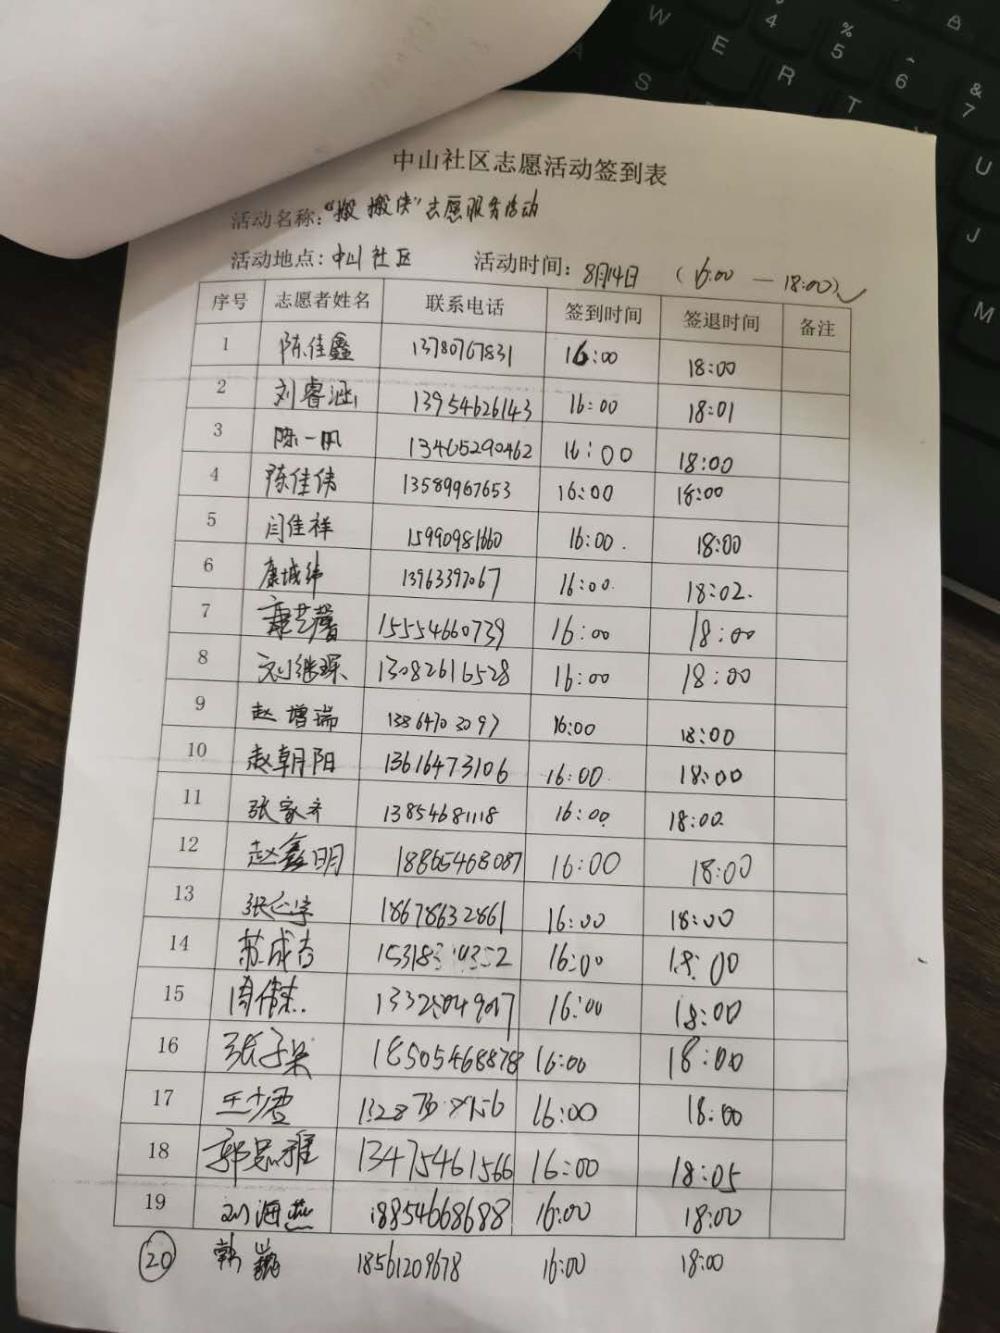 中山社区志愿活动签到表
活动名称:“搬搬侠”志愿服务活动
活动地点:中山社区 活动时间:8月14日 (16:00 — 18:00)
序号 志愿者姓名 联系电话 签到时间 签退时间 备注
1 陈佳鑫 13780767831 16:00 18:00
2 刘睿涵 13954626143 16:00 18:01
3 陈一帆 13405290462 16:00 18:00
4 陈佳伟 13589967653 16:00 18:00
5 闫佳祥 15990981660 16:00. 18:00
6 康城纬 13963397067 16:00. 18:02.
7 康艺馨 15554660739 16:00 18:00
8 刘继琛 13082616528 16:00 18:00
9 赵增瑞 13864703097 16:00 18:00
10 赵朝阳 13616473106 16:00. 18:00
11 张家齐 13854681118 16:00. 18:00.
12 赵鑫明 18865468087 16:00 18:00
13 18678632861 16:00 18:00
14 16:00 18:00
15 16:00 18:00
16 18505468878 16:00 18:00
17 16:00 18:00
18 郭思雅 13475461566 16:00 18:05
19 刘海燕 18854668688 16:00 18:00
20 韩巍 18561209678 16:00 18:00
W
E
R
T
A
S
U
J
M
4
%
5
6
&
7